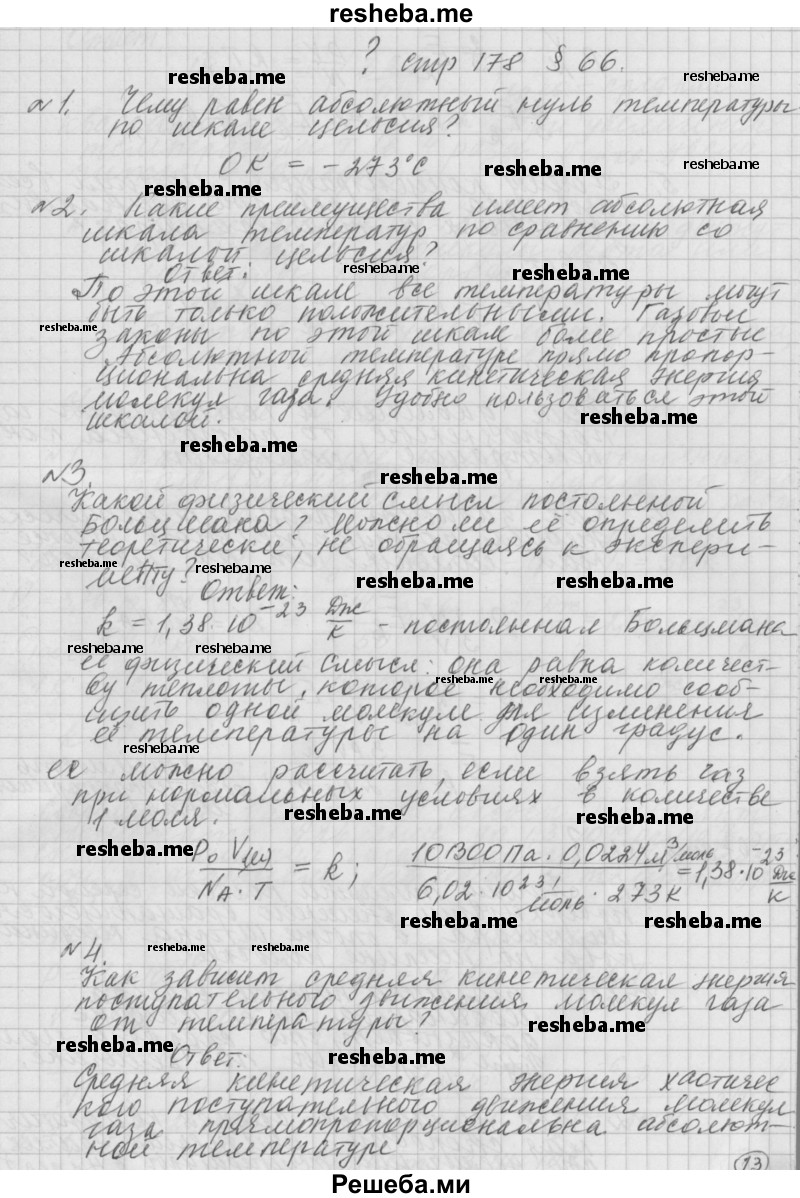 resheba.me
? стр 178 § 66.
resheba.me resheba.me
№1. Чему равен абсолютный нуль температуры
по шкале Цельсия?
0К = -273°С resheba.me resheba.me
resheba.me
№2. Какие преимущества имеет абсолютная
шкала температур по сравнению со
шкалой Цельсия?
Ответ: resheba.me resheba.me
По этой шкале все температуры могут
быть только положительными. Газовые
resheba.me законы по этой шкале более простые
Абсолютной температуре прямо пропор-
циональна средняя кинетическая энергия
молекул газа. Удобно пользоваться этой
шкалой. resheba.me
resheba.me
№3. resheba.me
Какой физический смысл постоянной
Больцмана? Можно ли её определить
теоретически, не обращаясь к экспери-
resheba.me менту? resheba.me
Ответ: resheba.me resheba.me
k = 1,38·10⁻²³ Дж/К - постоянная Больцмана
resheba.me resheba.me
её физический смысл: она равна количест-
ву теплоты, которое необходимо сооб- resheba.me resheba.me
щить одной молекуле для изменения
её температуры на один градус.
resheba.me
ее можно рассчитать, если взять газ
при нормальных условиях в количестве
1 моля. resheba.me resheba.me
resheba.me P₀ V(μ) / N_A · T = k; 101300Па · 0,0224м³/моль / 6,02·10²³ 1/моль · 273К = 1,38·10⁻²³ Дж/К
resheba.me resheba.me
№4. resheba.me resheba.me
Как зависит средняя кинетическая энергия
поступательного движения молекул газа
от температуры? resheba.me
resheba.me Ответ: resheba.me
Средняя кинетическая энергия хаотичес
кого поступательного движения молекул
газа прямопропорциональна абсолют-
ной температуре
13
Решеба.ми